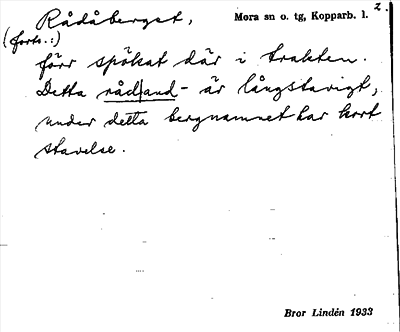 Rådåberget, Mora sn o. tg, Kopparb. l. 2.
(forts.:)
förr spökat där i trakten.
Detta råd|and- är långstavigt,
under detta bergnamnet har kort
stavelse.
Bror Lindén 1933